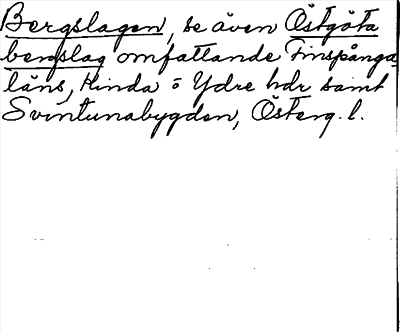 Bergslagen, se även Östgöta
bergslag omfattande Finspånga
läns, Kinda o Ydre hdr samt
Svintunabygden, Österg. l.